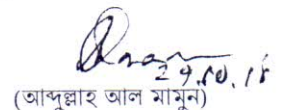 29.10.18
(আব্দুল্লাহ আল মামুন)